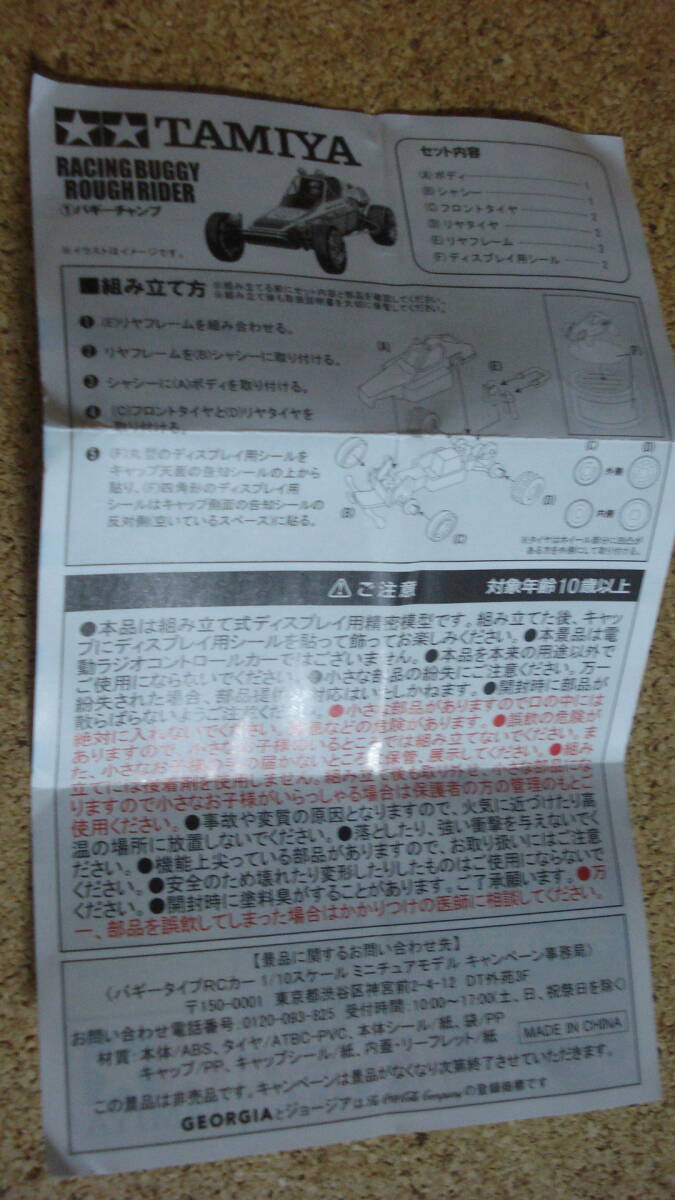 TAMIYA
RACING BUGGY
ROUGH RIDER
①バギーチャンプ
※イラストはイメージです。
セット内容
(A)ボディ 1
(B)シャシー 1
(C)フロントタイヤ 2
(D)リヤタイヤ 2
(E)リヤフレーム 2
(F)ディスプレイ用シール 2
■組み立て方 ※組み立てる前にセット内容と部品を確認してください。
※組み立て後も取扱説明書を大切に保管してください。
❶ (E)リヤフレームを組み合わせる。
❷ リヤフレームを(B)シャシーに取り付ける。
❸ シャシーに(A)ボディを取り付ける。
❹ (C)フロントタイヤと(D)リヤタイヤを
取り付ける。
❺ (F)丸型のディスプレイ用シールを
キャップ天面の告知シールの上から
貼り、(F)四角形のディスプレイ用
シールはキャップ側面の告知シールの
反対側(空いているスペース)に貼る。
(A)
(E)
(F)
(B)
(C)
(D)
(C) (D)
外側
内側
※タイヤはホイール部分に凹凸が
ある方を外側にして取り付ける。
⚠ご注意 対象年齢10歳以上
●本品は組み立て式ディスプレイ用精密模型です。組み立てた後、キャッ
プにディスプレイ用シールを貼って飾ってお楽しみください。●本景品は電
動ラジオコントロールカーではございません。●本品を本来の用途以外で
ご使用にならないでください。●小さな部品の紛失にご注意ください。万一
紛失された場合、部品提供の対応はいたしかねます。●開封時に部品が
散らばらないようご注意ください。●小さな部品がありますので口の中には
絶対に入れないでください。窒息などの危険があります。●誤飲の危険が
ありますので、小さなお子様のいるところでは組み立てないでください。ま
た、小さなお子様の手の届かないところに保管、展示してください。●組み
立てには接着剤を使用しません。組み立て後も取り外せ、小さな部品にな
りますので小さなお子様がいらっしゃる場合は保護者の方の管理のもとご
使用ください。●事故や変質の原因となりますので、火気に近づけたり高
温の場所に放置しないでください。●落としたり、強い衝撃を与えないでく
ださい。●機能上尖っている部品がありますので、お取り扱いにはご注意
ください。●安全のため壊れたり変形したりしたものはご使用にならないで
ください。●開封時に塗料臭がすることがあります。ご了承願います。●万
一、部品を誤飲してしまった場合はかかりつけの医師に相談してください。
【景品に関するお問い合わせ先】
〈バギータイプRCカー 1/10スケール ミニチュアモデル キャンペーン事務局〉
〒150-0001 東京都渋谷区神宮前2-4-12 DT外苑3F
お問い合わせ電話番号:0120-093-825 受付時間:10:00〜17:00(土、日、祝祭日を除く)
材質:本体/ABS、タイヤ/ATBC-PVC、本体シール/紙、袋/PP
キャップ/PP、キャップシール/紙、内蓋・リーフレット/紙
MADE IN CHINA
この景品は非売品です。キャンペーンは景品がなくなり次第終了させていただきます。
GEORGIAとジョージアはThe Coca-Cola Companyの登録商標です